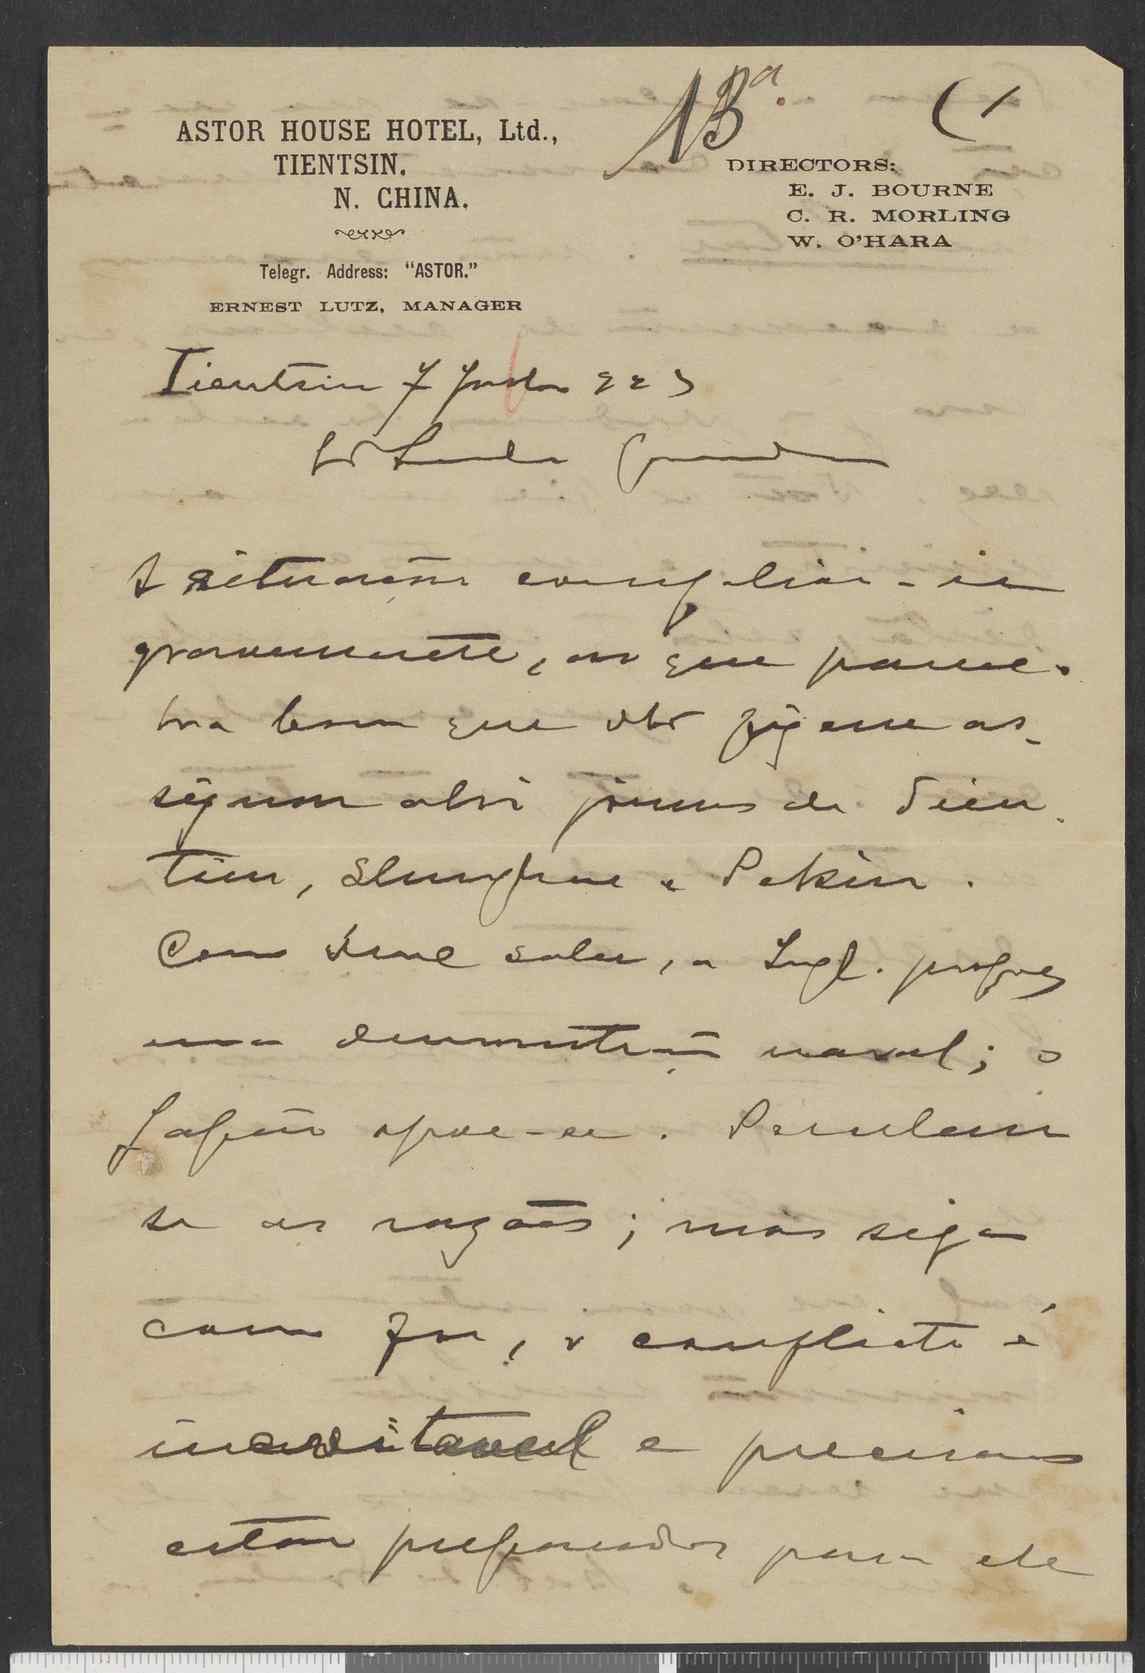 13ª.
ASTOR HOUSE HOTEL, Ltd.,
TIENTSIN.
N. CHINA.
Telegr. Address: "ASTOR."
ERNEST LUTZ, MANAGER
DIRECTORS:
E. J. BOURNE
C. R. MORLING
W. O'HARA
Tientsin 7
A situação complica-se
gravemente, ao que parece.
bem que fizesse as-
signar jornaes de Tien-
tsin, Shanghae e Pekin.
Como deve saber, a Ingl. propoz
uma demonstração naval; o
Japão opoe-se.
se as razões; mas seja
como for, o conflicto é
inevitavel e precisamos
estar preparados para ele